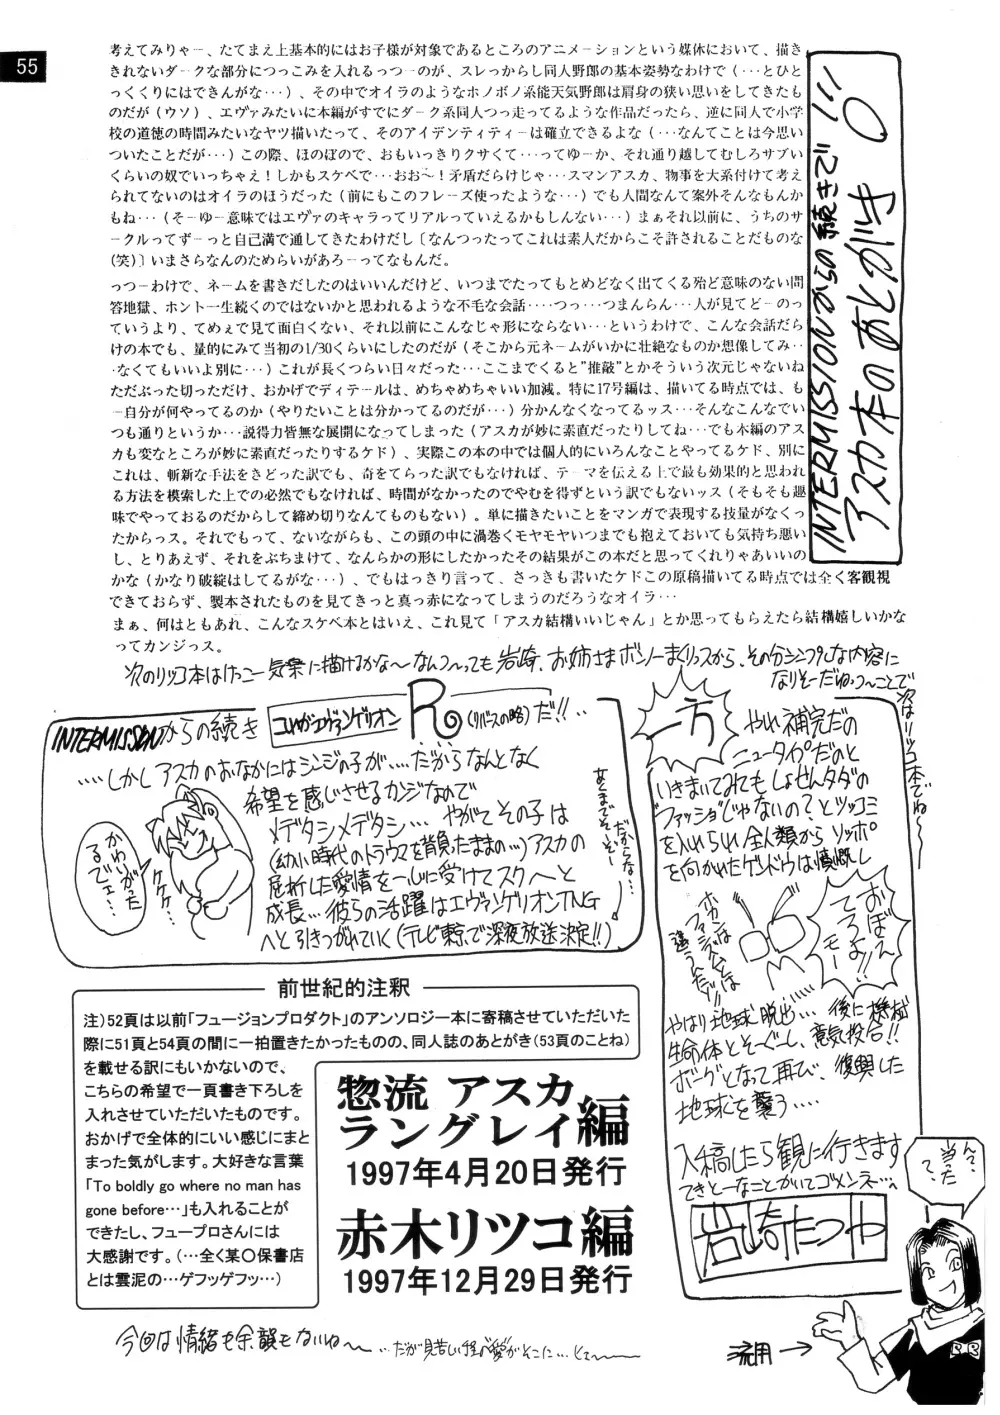 55
INTERMISSIONからの続きで!!!
アスカ本のあとがき
考えてみりゃー、たてまえ上基本的にはお子様が対象であるところのアニメーションという媒体において、描き
きれないダークな部分につっこみを入れるっつーのが、スレっからし同人野郎の基本姿勢なわけで(…とひと
っくくりにはできんがな…)、その中でオイラのようなホノボノ系能天気野郎は肩身の狭い思いをしてきたも
のだが(ウソ)、エヴァみたいに本編がすでにダーク系同人つっ走ってるような作品だったら、逆に同人で小学
校の道徳の時間みたいなヤツ描いたって、そのアイデンティティーは確立できるよな(…なんてことは今思い
ついたことだが…)この際、ほのぼので、おもいっきりクサくて…ってゆーか、それ通り越してむしろサブい
くらいの奴でいっちゃえ!しかもスケベで…おお〜!矛盾だらけじゃ…スマンアスカ、物事を大系付けて考え
られてないのはオイラのほうだった(前にもこのフレーズ使ったような…)でも人間なんて案外そんなもんか
もね…(そーゆー意味ではエヴァのキャラってリアルっていえるかもしんない…)まぁそれ以前に、うちのサ
ークルってずーっと自己満で通してきたわけだし〔なんつったってこれは素人だからこそ許されることだものな
(笑)〕いまさらなんのためらいがあろーってなもんだ。
っつーわけで、ネームを書きだしたのはいいんだけど、いつまでたってもとめどなく出てくる殆ど意味のない問
答地獄、ホント一生続くのではないかと思われるような不毛な会話‥‥つっ…つまんらん…人が見てどーのっ
ていうより、てめぇで見て面白くない、それ以前にこんなじゃ形にならない…というわけで、こんな会話だら
けの本でも、量的にみて当初の1/30くらいにしたのだが(そこから元ネームがいかに壮絶なものか想像してみ‥
‥なくてもいいよ別に…)これが長くつらい日々だった…ここまでくると"推敲"とかそういう次元じゃないね
ただぶった切っただけ、おかげでディテールは、めちゃめちゃいい加減。特に17号編は、描いてる時点では、も
ー自分が何やってるのか(やりたいことは分かってるのだが…)分かんなくなってるッス…そんなこんなでい
つも通りというか…説得力皆無な展開になってしまった(アスカが妙に素直だったりしてね…でも本編のアス
カも変なところが妙に素直だったりするケド)、実際この本の中では個人的にいろんなことやってるケド、別に
これは、斬新な手法をきどった訳でも、奇をてらった訳でもなければ、テーマを伝える上で最も効果的と思われ
る方法を模索した上での必然でもなければ、時間がなかったのでやむを得ずという訳でもないッス(そもそも趣
味でやっておるのだからして締め切りなんてものもない)。単に描きたいことをマンガで表現する技量がなくっ
たからッス。それでもって、ないながらも、この頭の中に渦巻くモヤモヤいつまでも抱えておいても気持ち悪い
し、とりあえず、それをぶちまけて、なんらかの形にしたかったその結果がこの本だと思ってくれりゃあいいの
かな(かなり破綻はしてるがな…)、でもはっきり言って、さっきも書いたケドこの原稿描いてる時点では全く客観視
できておらず、製本されたものを見てきっと真っ赤になってしまうのだろうなオイラ…
まぁ、何はともあれ、こんなスケベ本とはいえ、これ見て「アスカ結構いいじゃん」とか思ってもらえたら結構嬉しいかな
ってカンジっス。
次のリツコ本はけっこー気楽に描けるかな〜なんつっても岩崎、お姉さまボンノーまくりっスから、その分シンプルな内容に
なりそーだねっつーことで
次はリツコ本でね〜
INTERMISSIONからの続き
コレがエヴァンゲリオン
R(リバースの略)だ!!‥
‥‥しかしアスカのおなかにはシンジの子が‥‥だからなんとなく
希望を感じさせるカンジなので
メデタシメデタシ…やがてその子は
(幼い時代のトラウマを背負ったままの…)アスカの
屈折した愛情を一心に受けてスクスクと
成長…彼らの活躍はエヴァンゲリオンTNG
へと引きつがれていく(テレビ東京で深夜放送決定!!)
かわいがったるでェ…
ケケケ…
一方
やれ補完だの
ニュータイプだのと
いきまいてみても しょせんタダの
ファッショじゃないの?とツッコミ
を入れられ 全人類から ソッポ
を向かれたゲンドウは憤慨し
おぼえてろよ!!モー
やはり地球脱出‥‥後に機械
生命体とそーぐーし、意気投合!!
ボーグとなって再び、復興した
地球を襲う‥‥
入稿したら観に行きます
てきとーなことかいてゴメンネ〜
岩崎たつや
んで、当たって、
流用→
前世紀的注釈
注)52頁は以前「フュージョンプロダクト」のアンソロジー本に寄稿させていただいた
際に51頁と54頁の間に一拍置きたかったものの、同人誌のあとがき(53頁のことね)
を載せる訳にもいかないので、
こちらの希望で一頁書き下ろしを
入れさせていただいたものです。
おかげで全体的にいい感じにまと
まった気がします。大好きな言葉
「To boldly go where no man has
gone before…」も入れることが
できたし、フュープロさんには
大感謝です。(…全く某〇保書店
とは雲泥の…ゲフッゲフッ…)
惣流 アスカ
ラングレイ編
1997年4月20日発行
赤木リツコ編
1997年12月29日発行
今回は情緒も余韻もないね〜
…だが見苦しい程の"愛"がそこに…